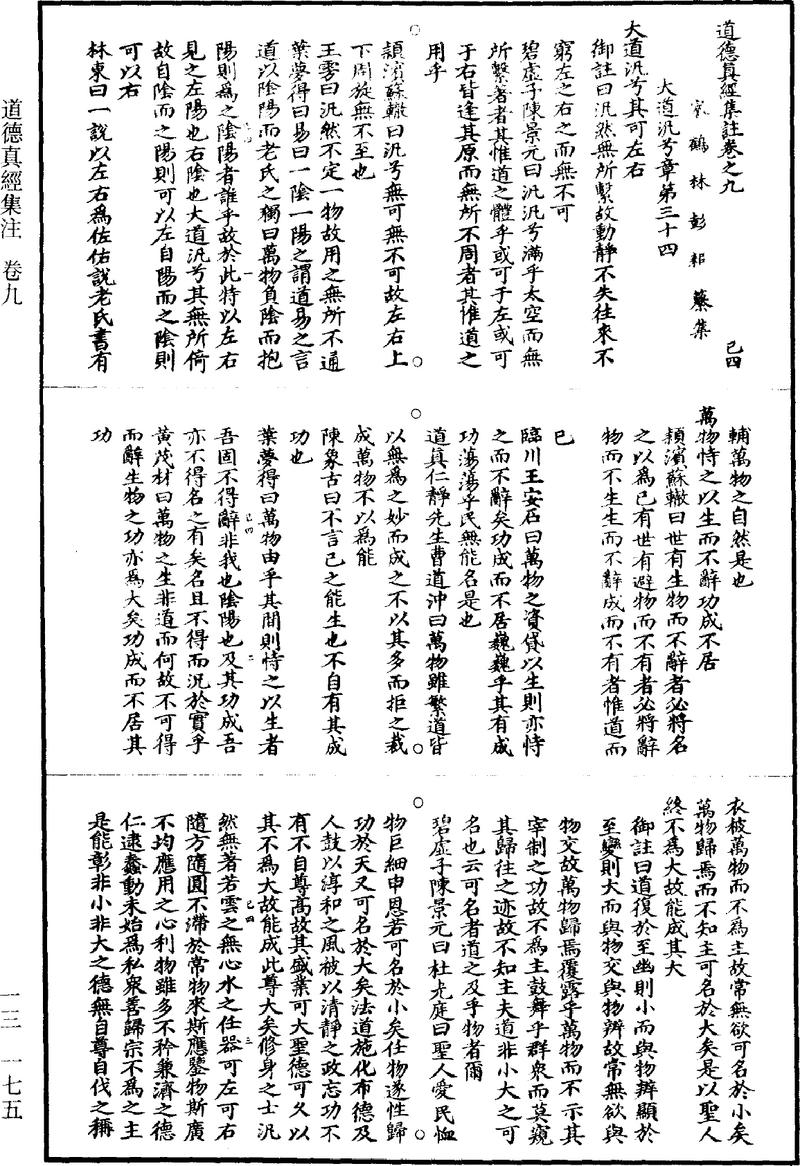 道德真經集註卷之九
宋鶴林彭耜纂集
己四
大道汎兮章第三十四
大道汎兮其可左右
御註曰汎然無所繫故動靜不失往來不
窮左之右之而無不可
碧虛子陳景元曰汎汎兮滿乎太空而無
所繫著者其惟道之體乎或可于左或可
于右皆逢其原而無所不周者其惟道之
用乎
頴濱蘇轍曰汎兮無可無不可故左右上
下周旋無不至也
王雱曰汎然不定一物故用之無所不通
葉夢得曰易曰一陰一陽之謂道易之言
道以陰陽而老氏之獨曰萬物負陰而抱
陽則爲之陰陽者誰乎故於此特以左右
見之左陽也右陰也大道汎兮其無所倚
故自陰而之陽則可以左自陽而之陰則
可以右
林東曰一說以左右爲佐佑說老氏書有
輔萬物之自然是也
萬物恃之以生而不辭功成不居
頴濱蘇轍曰世有生物而不辭者必將名
之以爲已有世有避物而不有者必將辭
物而不生生而不辭成而不有者惟道而
已
臨川王安石曰萬物之資貸以生則亦恃
之而不辭矣功成而不居巍巍乎其有成
功蕩蕩乎民無能名是也
道真仁靜先生曹道沖曰萬物雖繁道皆
以無爲之妙而成之不以其多而拒之裁
成萬物不以爲能
陳象古曰不言已之能生也不自有其成
功也
葉夢得曰萬物由乎其間則恃之以生者
吾固不得辭非我也陰陽也及其功成吾
亦不得名之有矣名且不得而況於實乎
黃茂材曰萬物之生非道而何故不可得
而辭生物之功亦爲大矣功成而不居其
功
衣被萬物而不爲主故常無欲可名於小矣
萬物歸焉而不知主可名於大矣是以聖人
終不爲大故能成其大
御註曰道復於至幽則小而與物辨顯於
至變則大而與物交與物辨故常無欲與
物交故萬物歸焉覆露乎萬物而不示其
宰制之功故不爲主鼓舞乎群衆而莫窺
其歸往之迹故不知主夫道非小大之可
名也云可名者道之及乎物者爾
碧虛子陳景元曰杜光庭曰聖人愛民恤
物巨細申恩若可名於小矣任物遂性歸
功於天又可名於大矣法道施化布德及
人鼓以淳和之風被以清靜之政忘功不
有不自尊高故其盛業可大聖德可久以
其不爲大故能成此尊大矣修身之士汎
然無著若雲之無心水之任器可左可右
隨方隨圓不滯於常物來斯應鑒物斯廣
不均應用之心利物雖多不矜兼濟之德
仁逮蠢動未始爲私衆善歸宗不爲之主
是能彰非小非大之德無自尊自伐之稱
道德真經集注 卷九
一三 一七五